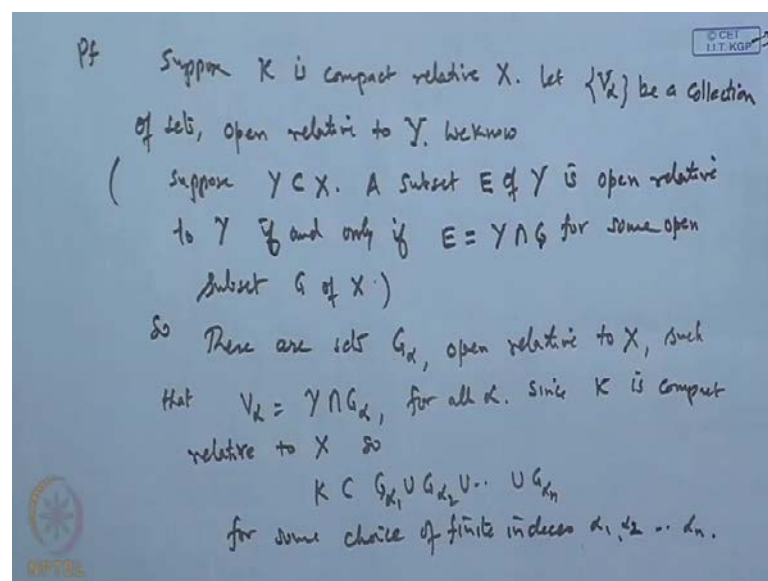 © CET
I.I.T. KGP
Pf Suppose K is compact relative X. Let {Vα} be a collection
of sets, open relative to Y. We know
( Suppose Y ⊂ X. A subset E of Y is open relative
to Y if and only if E = Y ∩ G for some open
subset G of X.)
So There are sets Gα, open relative to X, such
that Vα = Y ∩ Gα, for all α. Since K is compact
relative to X so
K ⊂ Gα₁ ∪ Gα₂ ∪ .. ∪ Gαₙ
for some choice of finite indeces α₁, α₂ .. αₙ.
NPTEL